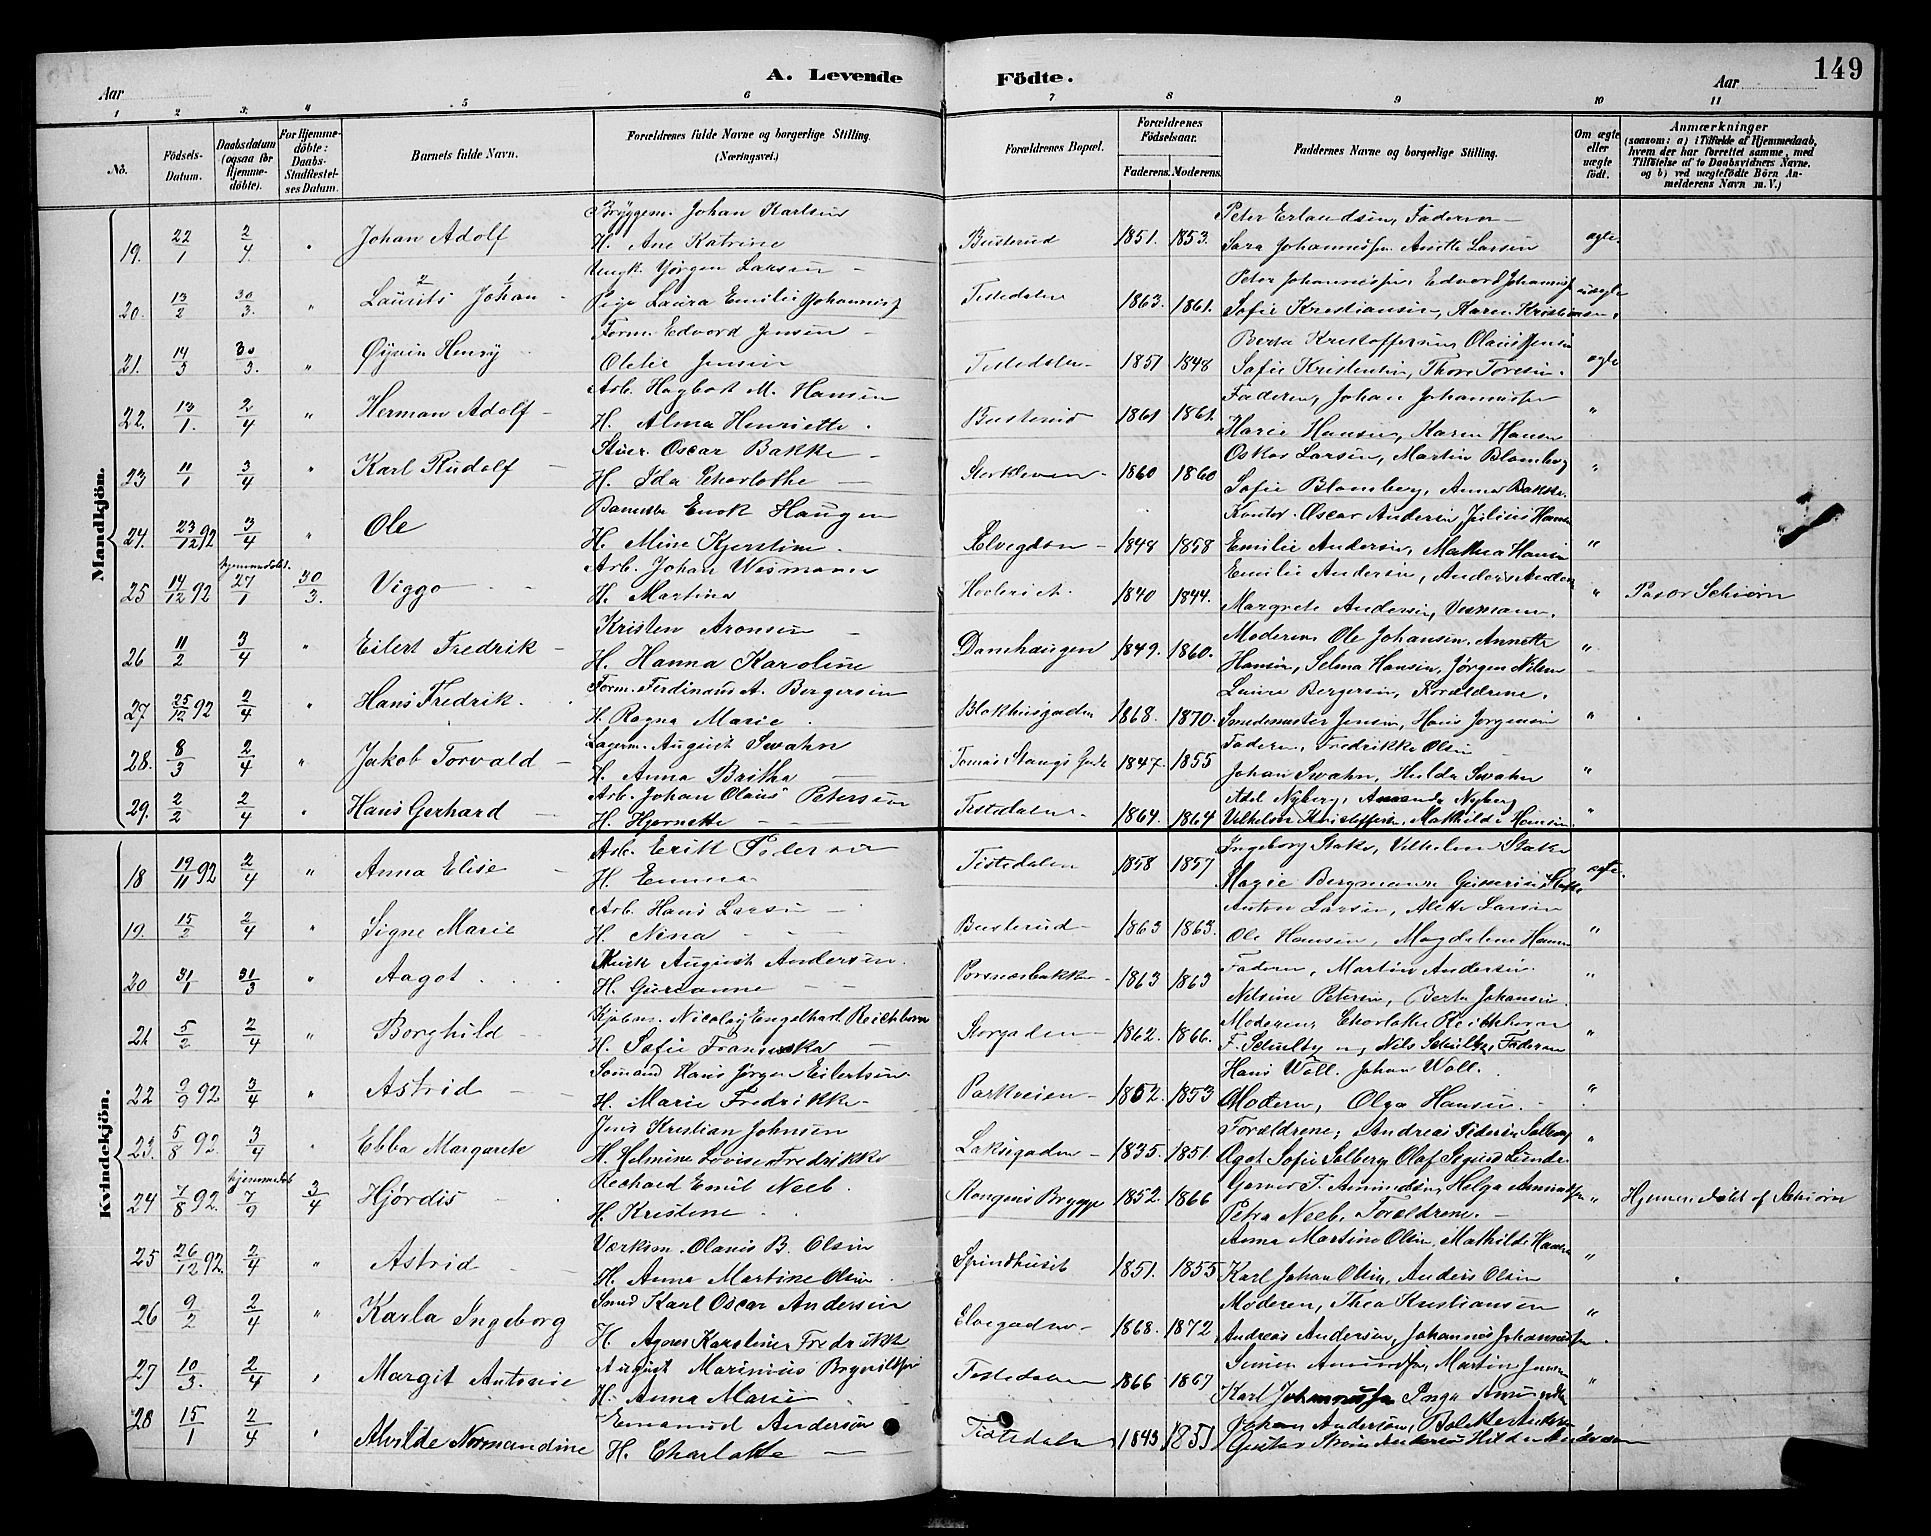 A. Levende Födte.
149
Aar
Aar
1 2 3. 4 5 6 7 8 9 10 11
No.
Födsels-Datum.
Daabsdatum (ogsaa for Hjemme-döbte).
For Hjemme-döbte: Daabs-Stadfestel-ses Datum.
Barnets fulde Navn.
Forældrenes fulde Navne og borgerlige Stilling. (Næringsvei.)
Forældrenes Bopæl.
Forældrenes Födselsaar.
Faderens. Moderens.
Faddernes Navne og borgerlige Stilling.
Om ægte eller uægte født.
Anmærkninger
(saasom: a) i Tilfælde af Hjemmedaab, hvem der har forrettet samme, med Tilföielse af to Daabsvidners Navne, og b) ved uægtefödte Börn An-melderens Navn m. V.)
Mandkjön.
Bryggem. Johan Karlsen Peter Erlandsen, Faderen
19. 22/1 2/4 " Johan Adolf H. Ane Katrine Busterud 1851. 1853. Sara Johannesen Anette Larsen ægte
Ungk. Jörgen Larsen Peter Johannesen, Edvard Johannesen
20. 13/2 30/3. " Laurits Johan Pige Laura Emilie Johannesen Tistedalen 1863. 1861. Sofie Kristiansen, Karen Kristiansen. uægte
Form. Edvard Jensen Berta Kristoffersen, Olaus Jensen
21. 14/3 30/3. " Öyvin Henry Oletie Jensen Tistedalen 1851 1848 Sofie Kristensen, Thora Toresen. ægte
Arb. Hagbart M. Hansen Faderen, Johan Johannesen
22. 13/1. 2/4 " Herman Adolf H. Alma Henriette Busterud 1861 1861. Marie Hansen, Karen Hansen "
Stuer. Oscar Bakke Oskar Larsen, Martin Blomberg
23 11/1 3/4 " Karl Rudolf H. Ida Charlothe 1860 1860 Sofie Blomberg, Anna Bakke. "
Enok Haugen Kontor. Oscar Andersen Julius Hansen
24. 23/12 92 3/4 " Ole H. Mine Kjerstine Elvegaden 1848 1858 Emilie Andersen, Mathea Hansen "
hjemmedöbt. Arb. Johan Wismann Emilie Andersen, Anders Andersen
25 14/12 92 27/1 30/3. Viggo H. Martina 1840 1844. Margrete Andersen, Wismann. " Pastor Schiørn
Kristen Aronsen Moderen, Ole Johansen, Annette
26 11/2 3/4 " Eilert Fredrik H. Hanna Karoline Damhaugen 1849. 1860. Hansen, Selma Hansen, Jörgen Nilsen "
Form. Ferdinand A. Bergersen Laura Bergersen, Forældrene.
27 25/12 92 2/4 " Hans Fredrik H. Ragna Marie Blokhusgaden 1868. 1870. Smedemester Jensen, Hans Jörgensen "
Lagerm. August Swahn Faderen, Fredrikke Olsen
28. 8/3 2/4 " Jakob Torvald H. Anna Britha Tomas Stangs Gade 1847. 1855 Johan Swahn, Hulda Swahn "
Arb. Johan Olaus Petersen Adel Nyberg, Amanda Nyberg
29. 2/2 2/4 " Hans Gerhard H. Hjernette Tistedalen. 1864. 1864 Vilhelm Kristoffersen, Mathilde Hansen. "
Kvindekjön.
Arb. Erik Petersen Ingeborg Stake, Vilhelm Stake
18 19/11 92 2/4 " Anna Elise H. Emma Tistedalen 1858 1857 Magie Bergmann ægte.
Arb. Hans Larsen Anton Larsen, Alette Larsen
19. 15/2 2/4 " Signe Marie H. Nina Busterud 1863 1863. Ole Hansen, Magdalena Hansen "
August Andersen. Faderen, Martin Andersen.
20 31/1 31/3 " Aagot H. Gurianne Porsnæsbakken 1863 1863 Nilsine Petersen, Berta Johansen. "
Kjøbm. Nicolay Engelhard Reichborn Moderen, Charlotte Reichborn
21. 5/2 2/4 " Borghild H. Sofie Franseska Storgaden 1862. 1866. F. Schulby, Nils Schulby, Faderen "
Sömand Hans Jörgen Eilertsen Hans Woll. Johan Woll.
22 9/9 92 3/4 " Astrid H. Marie Fredrikke Parkveien 1852. 1853 Moderen, Olga Hansen. "
Jens Kristian Johnsen Forældrene, Andreas Pedersen Solberg
23. 5/8 92 3/4 " Ebba Margarete H. Helmine Lovise Fredrikke Laksegaden 1835. 1851. Agot Sofie Solberg Olaf Sigurd Lunde. "
hjemmedöbt Rechard Emil Neeb Amundsen, Helga Amundsen
24 7/8 92. 7/9 3/4 Hjørdis H. Kristine Rangens Brygge 1852. 1866 Petra Neeb, Forældrene. " Hjemmedöbt af Schiørn
Værksm. Olanis B. Olsen Anna Martine Olsen, Mathilde Hansen
25 26/12 92. 2/4 " Astrid H. Anna Martine Olsen Spindhuset 1851. 1855 Karl Johan Olsen, Anders Olsen "
Smed Karl Oscar Andersen Moderen, Thea Kristiansen
26 9/2 2/4 " Karla Ingeborg H. Agnes Karoline Fredrikke Elvegaden 1868. 1872 Andreas Andersen, Johannes Johannesen. "
August Marinius Bryniltsen Simen Amundsen, Martin Jensen
27 10/3. 2/4 " Margit Antonie H. Anna Marie Tistedalen 1866 1867 Karl Johannesen Inga Amundsen "
Emanuel Andersen Johan Andersen, Bolette Andersen
28 15/1 2/4 " Alvilde Normandine H. Charlotte Tistedalen 1843 1851 Gustav Andersen Hilda Andersen "